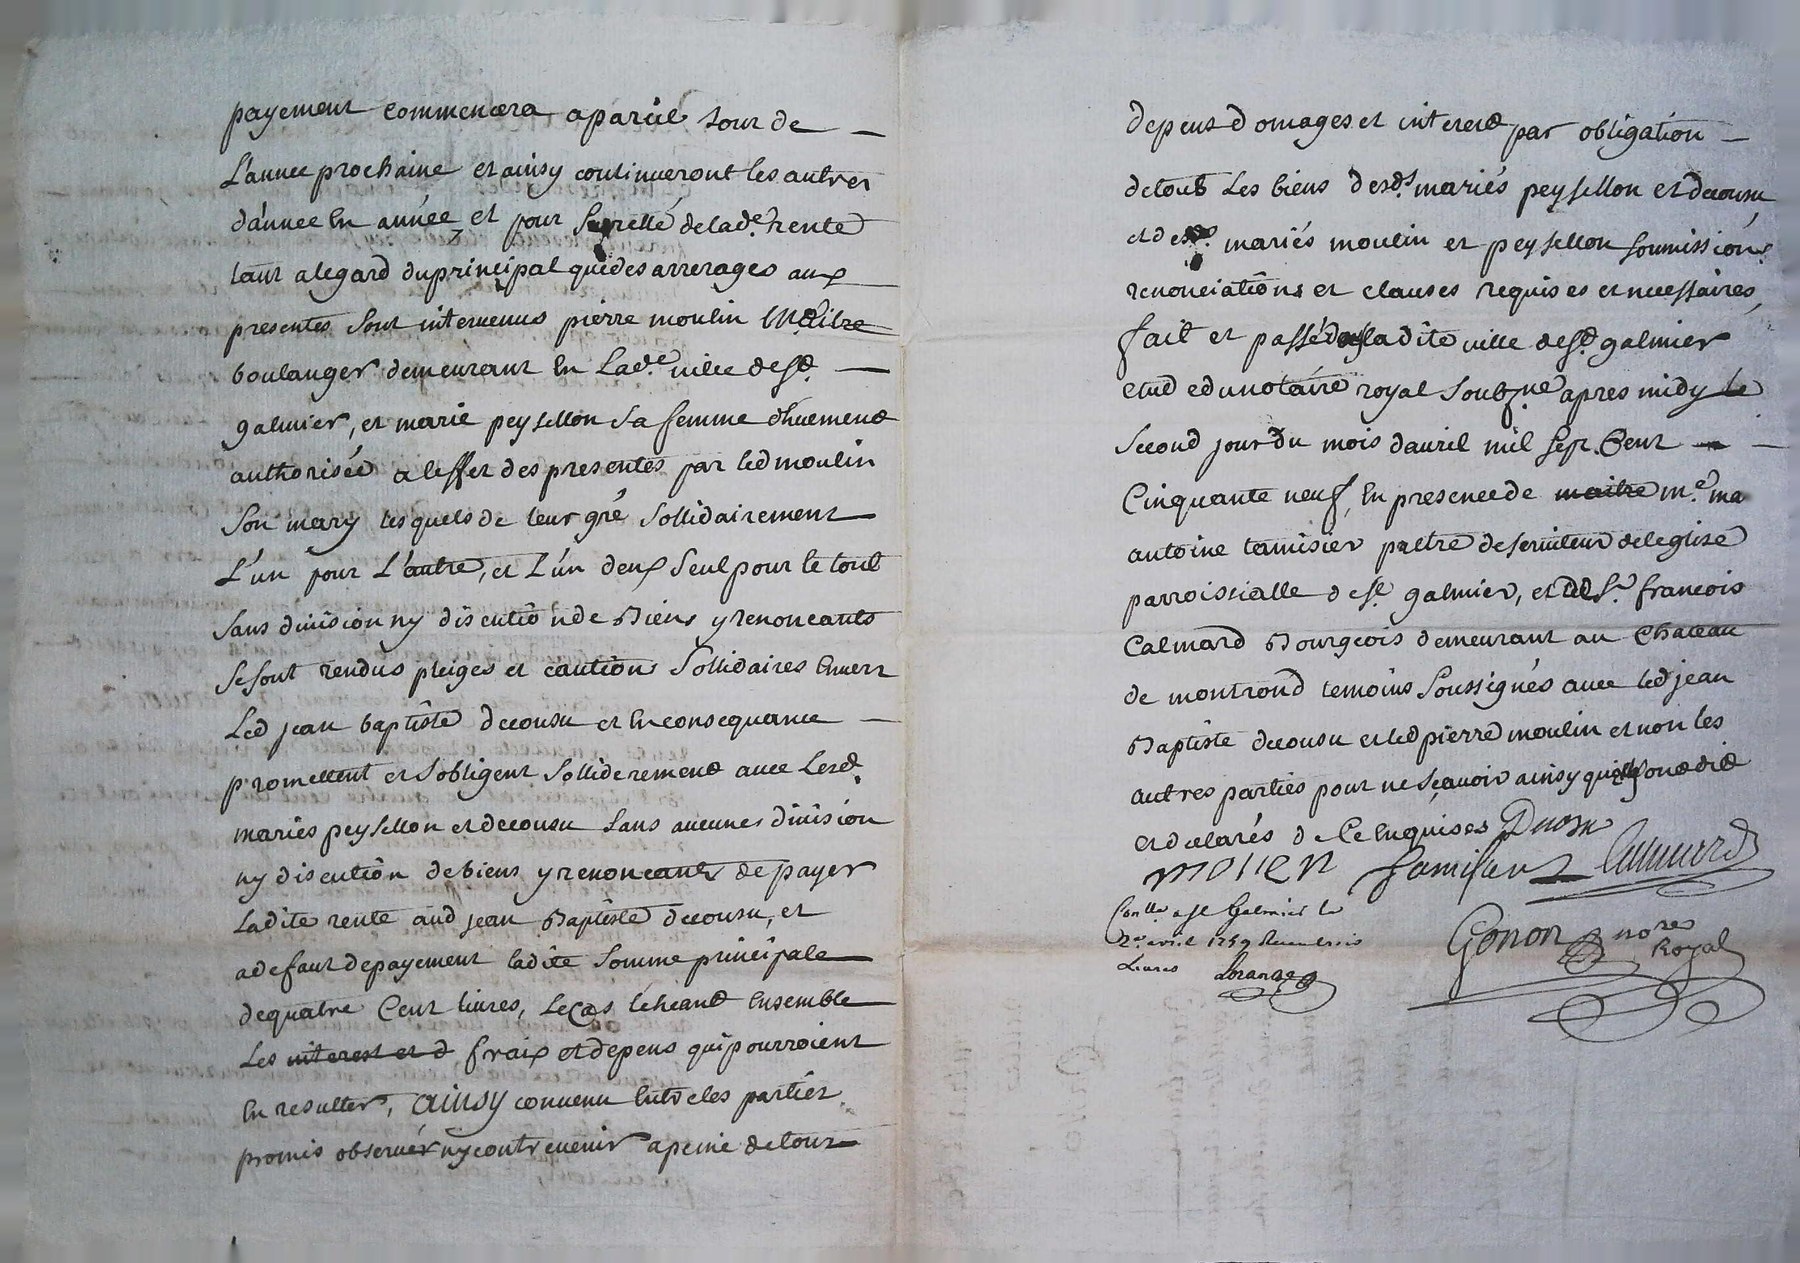 payement commencera apareil Jour de
L'année prochaine et ainsy continueront les autres
d'année En année et pour Surellé delad.e rente
tant alegard duprincipal quedes arrerages aux
presentes Sont intervenus pierre moulin Maitre
boulanger demeurant En Lad.e ville de St.
galmier, et marie peysellon Sa femme dhuement
authorisée a leffet des presentes par led moulin
Son mary lesquels de leur gré Sollidairement
L'un pour L'autre, et L'un deux Seul pour le tout
Sans division ny discution de Biens y renonceants
Se sont rendus pleiges et cautions Sollidaires Envers
Led jean baptiste decousu et En consequance
promettent et Sobligent Solliderement avec Lesd.
mariés peysellon et decousu Sans aucunes division
ny discution debiens y renonceants de payer
Ladite rente aud jean Baptiste decousu, et
adefaut depayement ladite Somme principale
dequatre Cent livres, le Cas Echeant Ensemble
Les interest et d fraix et depens qui pourroient
En resulter, ainsy convenu Entre les parties
promis observér ny contrevenir apeine de tout
depens domages et interest par obligation
de touts Les biens desds mariés peysellon et decousu
et desd. mariés moulin et peysellon Soumissions
renonciations et clauses requises et necessaires,
fait et passé dans ladite ville de St. galmier
etude du notaire royal Soubsne apres midy Le
Second jour du mois davril mil Sept Cent
Cinquante neuf, En presence de maitre m.e
antoine tamisier prettre deserviteur deleglise
parroissialle de St galmier, et de Sr francois
Calmard Bourgeois demeurant au Chateau
de montrond temoins Soussignés avec led jean
Baptiste decousu et led pierre moulin et non les
autres parties pour ne Sçavoir ainsy quils ont dit
et declarés de Ce Enquises Decousu
molien Tamisier Calmard
Con.lle a St Galmier le
2e avril 1759
Livres
Gonon nore
Royal